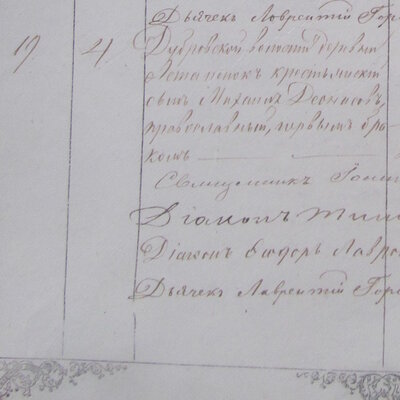 Дьячек Лаврентій Гор
19 4 Дубровской волости деревни
крестьянскій
сынъ Михаилъ Леонасовъ,
православный, первымъ бра-
комъ
Священникъ Іоан
Діаконъ
Діаконъ Ѳедоръ Лавро
Дьячекъ Лаврентій Гор